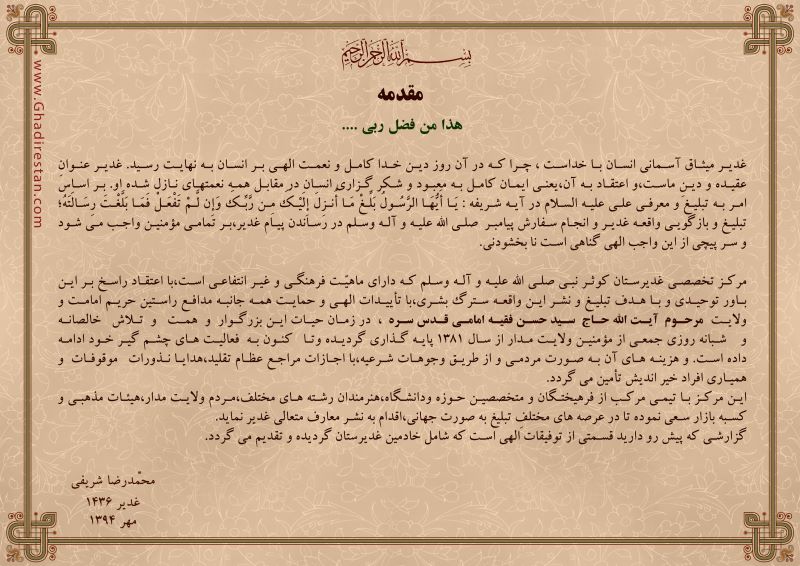 بسم الله الرحمن الرحیم
مقدمه
هذا من فضل ربی ....
غدیر میثاق آسمانی انسان با خداست ، چرا که در آن روز دین خدا کامل و نعمت الهی بر انسان به نهایت رسید. غدیر عنوان
عقیده و دین ماست،و اعتقاد به آن،یعنی ایمان کامل به معبود و شکر گزاری انسان در مقابل همه نعمتهای نازل شده او. بر اساس
امر به تبلیغ و معرفی علی علیه السلام در آیه شریفه : يَا أَيُّهَا الرَّسُولُ بَلِّغْ مَا أُنزِلَ إِلَيْكَ مِن رَّبِّكَ وَإِن لَّمْ تَفْعَلْ فَمَا بَلَّغْتَ رِسَالَتَهُ؛
تبلیغ و بازگویی واقعه غدیر و انجام سفارش پیامبر صلی الله علیه و آله وسلم در رساندن پیام غدیر،بر تمامی مؤمنین واجب می شود
و سر پیچی از این واجب الهی گناهی است نا بخشودنی.
مرکز تخصصی غدیرستان کوثر نبی صلی الله علیه و آله وسلم که دارای ماهیّت فرهنگی و غیر انتفاعی است،با اعتقاد راسخ بر این
باور توحیدی و با هدف تبلیغ و نشر این واقعه سترگ بشری،با تأییدات الهی و حمایت همه جانبه مدافع راستین حریم امامت و
ولایت مرحوم آیت الله حاج سید حسن فقیه امامی قدس سره ، در زمان حیات این بزرگوار و همت و تلاش خالصانه
و شبانه روزی جمعی از مؤمنین ولایت مدار از سال ۱۳۸۱ پایه گذاری گردیده وتا کنون به فعالیت های چشم گیر خود ادامه
داده است. و هزینه های آن به صورت مردمی و از طریق وجوهات شرعیه،با اجازات مراجع عظام تقلید،هدایا نذورات موقوفات و
همیاری افراد خیر اندیش تأمین می گردد.
این مرکز با تیمی مرکب از فرهیختگان و متخصصین حوزه ودانشگاه،هنرمندان رشته های مختلف،مردم ولایت مدار،هیئات مذهبی و
کسبه بازار سعی نموده تا در عرصه های مختلف تبلیغ به صورت جهانی،اقدام به نشر معارف متعالی غدیر نماید.
گزارشی که پیش رو دارید قسمتی از توفیقات الهی است که شامل خادمین غدیرستان گردیده و تقدیم می گردد.
محمدرضا شریفی
غدیر ۱۴۳۶
مهر ۱۳۹۴
www.Ghadirestan.com